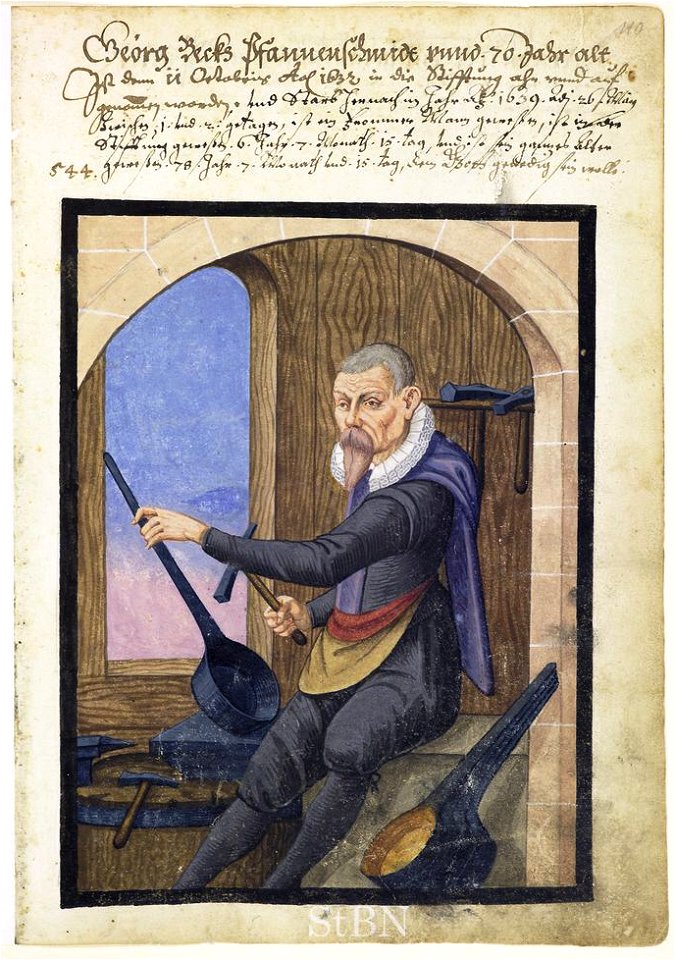 110
Georg Beckh Pfannenschmidt vund 70 Jahr alt
Ist dem 11 Octobris Ao 1632 in die Stifftung ahn vund auf
genommen worden, Vnd Starb hernach im Jahr 1639. Adj. 26. May
Zwischen 1. vnd 2. , ist ein frommer Mann gewesen, ist in der
Stifftung gewesen 6. Jahr 7. Monath 15. tag, Vnd ist sein ganzes alter
544. gewesen 78. Jahr 7. Monath vnd 15. tag, dem Gott genedig sein wolle.
StBN